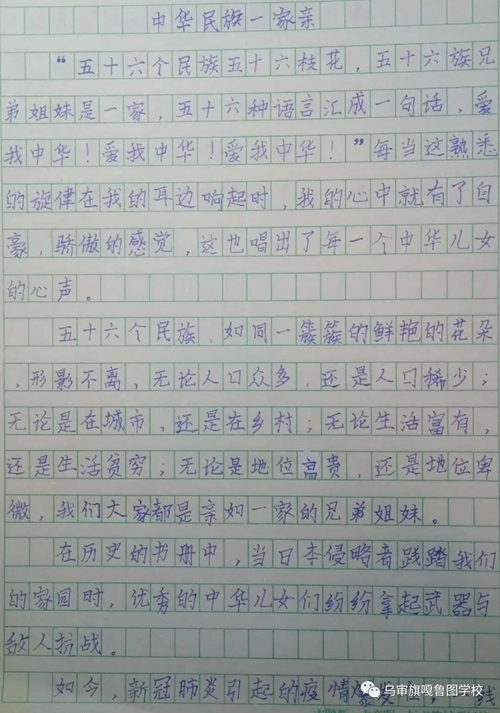 中华民族一家亲
“五十六个民族五十六枝花，五十六族兄
弟姐妹是一家，五十六种语言汇成一句话，爱
我中华！爱我中华！爱我中华！”每当这熟悉
的旋律在我的耳边响起时，我的心中就有了自
豪，骄傲的感觉，这也唱出了每一个中华儿女
的心声。
五十六个民族，如同一簇簇的鲜艳的花朵
，形影不离，无论人口众多，还是人口稀少；
无论是在城市，还是在乡村；无论生活富有，
还是生活贫穷；无论是地位高贵，还是地位卑
微，我们大家都是亲如一家的兄弟姐妹。
在历史的书册中，当日本侵略者践踏我们
的家国时，优秀的中华儿女们纷纷拿起武器与
敌人抗战。
如今，新冠肺炎引起的疫情
乌审旗嘎鲁图学校